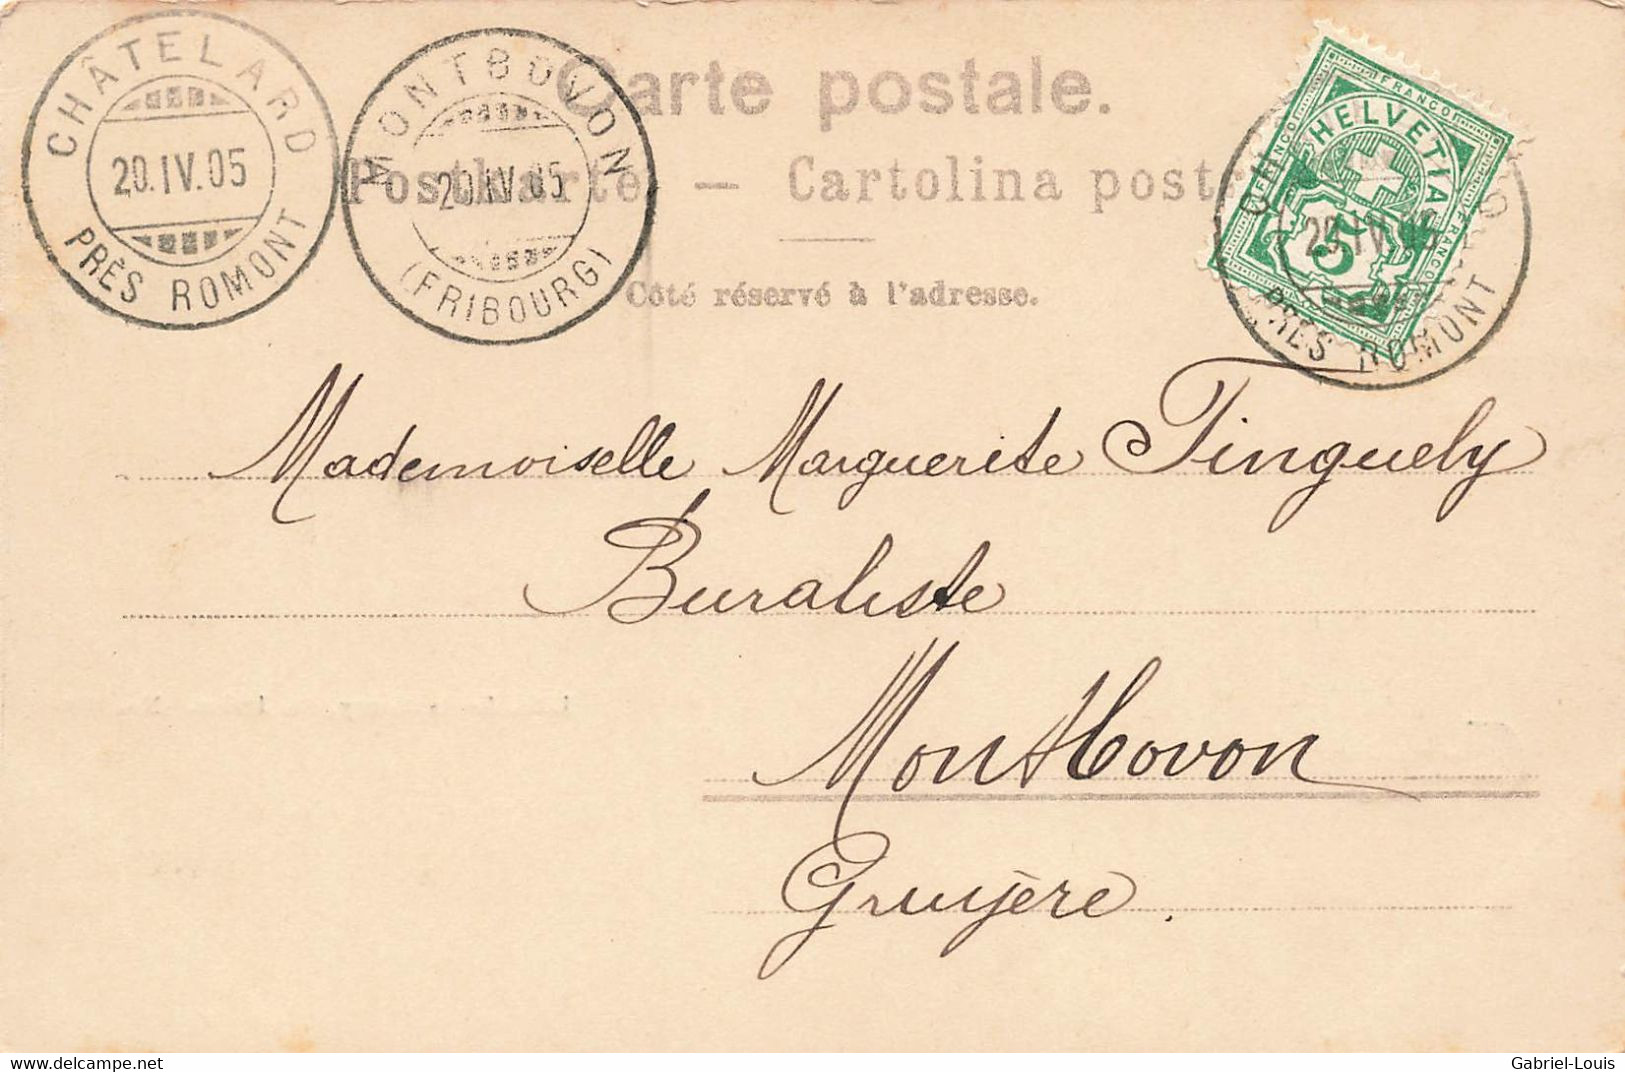 CHÂTELARD
20.IV.05
PRÈS ROMONT
MONTBOVON
20.IV.05
(FRIBOURG)
Carte postale.
Postkarte — Cartolina
Côté réservé à l'adresse.
FRANCO
HELVETIA
5
PRÈS ROMONT
Mademoiselle Marguerite Tinguely
Buraliste
Montbovon
Gruyère.
delcampe.net
Gabriel-Louis